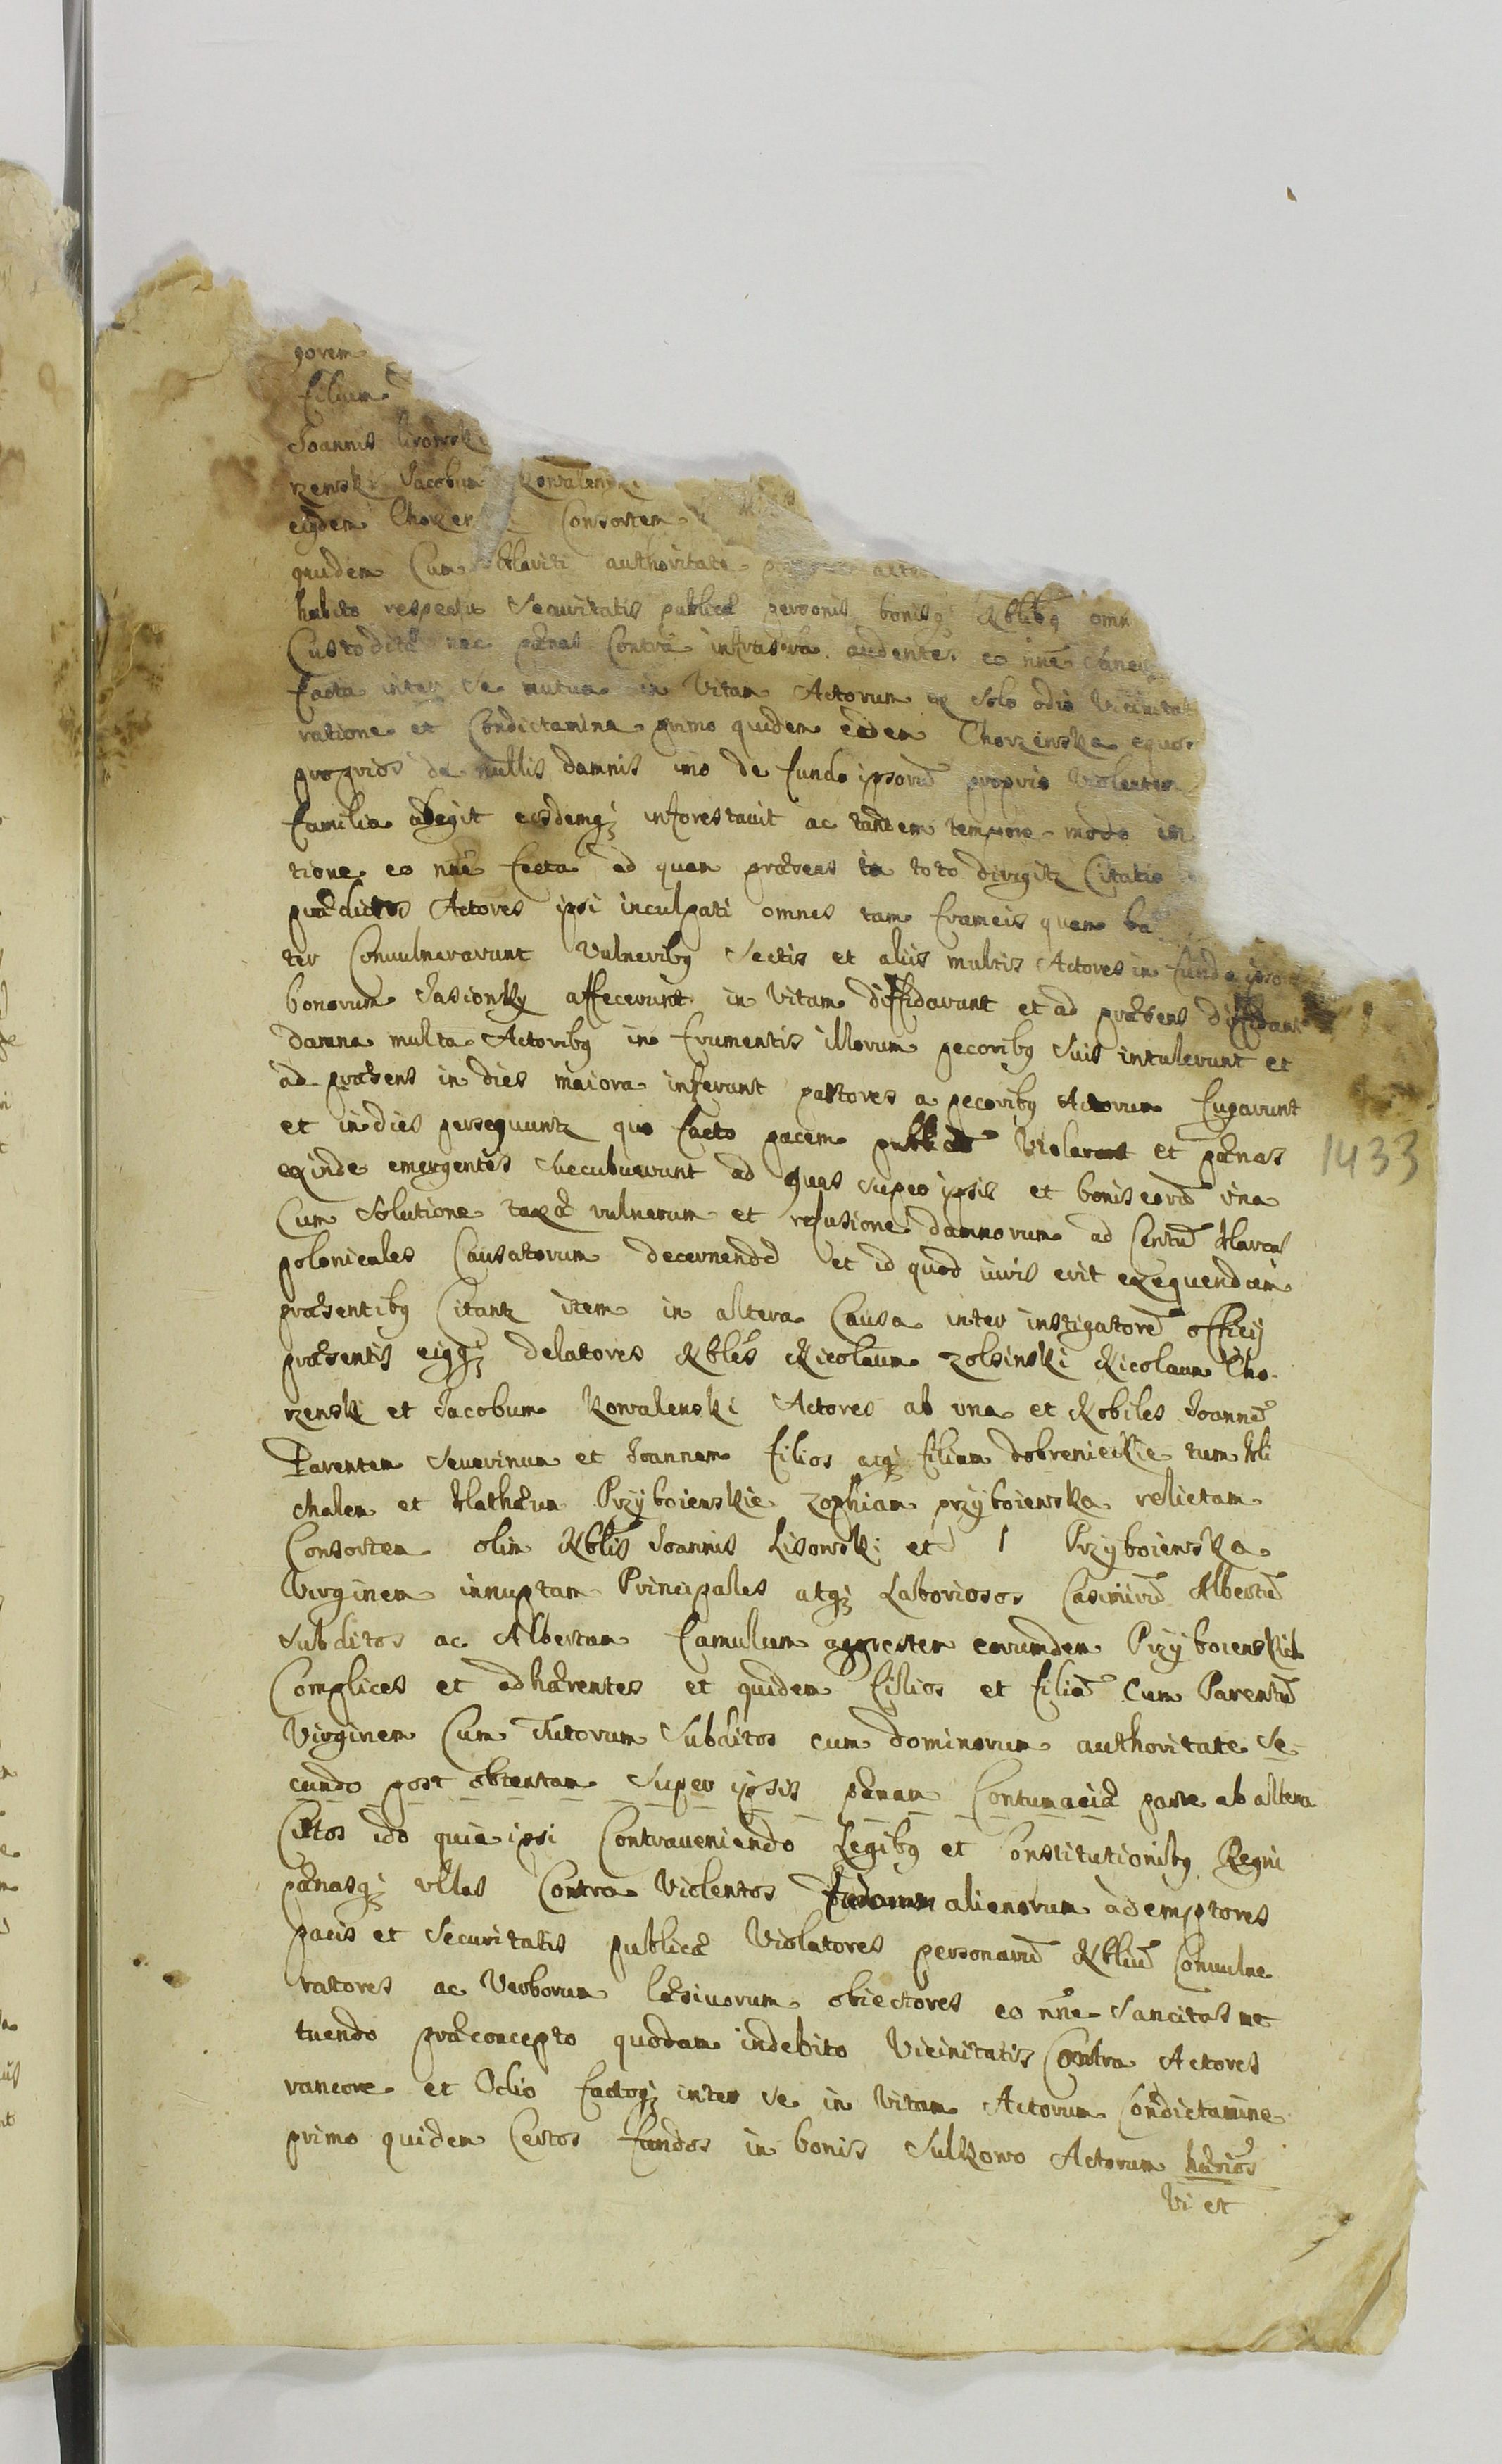 gorem
filium
Joannis Lisowski
rzenski Jacobum Kowalenski
eiusdem Chorzens Consortem
quidem Cum Mariti authoritate
habito respectu Securitatis publicæ personis bonisq Nblibq omn
Custoditæ nec pænas Contra infrascra audentes eo nne Sanci
facta inter se mutua in Vitam Actorum ex Solo odio Vicinitat
ratione et Condictamine primo quidem eadem Chorzenska equos
proprios de nullis damnis imo de fundo ipsorũ proprio Violenter
familia abegit eosdemqꝫ inforestauit ac tandem tempore modo in
tione eo nne facta ad quam præsens in toto dirigitz Citatio
prædictos Actores ipsi inculpati omnes tam frameis quam ba
ter Conuulnerarunt Vulneribq Sectis et aliis multis Actores in fundo ipso
bonorum Jasionky affecerunt in Vitam diffidarunt et ad præsens diffidant
damna multa Actoribq in frumentis illorum pecoribq Suis intulerunt et
ad præsens in dies maiora inferunt pastores a pecoribq Actorum fugarunt
et in dies persequuntz quo facto pacem publicã Violarunt et pænas
exinde emergentes Succubuerunt ad quas super ipsis et bonis eorũ una
Cum Solutione taxæ vulnerum et refusione damnorum ad Centũ Marcas
polonicales Causatorum decernendã et id quod iuris erit exequendam
præsentibq Citantz item in altera Causa inter instigatorẽ officij
præsentis eiqqꝫ delatores Nbles Nicolaum Zolsinski Nicolaum Cho-
rzenski et Jacobum Kowalenski Actores ab una et Nobiles Joannẽ
Parentem Seuerinum et Joannem filios acqꝫ filiam dobrenieckie tum Mi
chalem et Mathæum Przyboienskie Zophiam przyboienska relictam
Consortem olim Nblis Joannis Lisowski et Przyboienska
Virginem innuptam Principales atqꝫ Laboriosos Casimirũ Albertũ
Subditos ac Albertum famulum agrestem eorumdem Przyboienskich
Complices et adhærentes et quidem filios et filiã Cum Parentũ
Virginem Cum Tutorum Subditos cum dominorum authoritate Se-
cundo post obtentam Super ipsis pænam Contumaciæ parte ab altera
Cittos ido quia ipsi Contraueniendo Legibq et Constitutionibq Regni
pænasqꝫ ullas Contra Violentos fundorum alienorum ademptores
pacis et Securitatis publicæ Violatores personarũ Nbliũ Conuulne
ratores ac Verborum læsiuorum obiectores eo nne Sancitas me
tuendo præconcepto quodam indebito Vicinitatis Contra Actores
rancore et Odio factoqꝫ inter se in Vitam Actorum Condictamine
primo quidem Certos fundos in bonis Sulkowo Actorum hærios
Vi et
1433